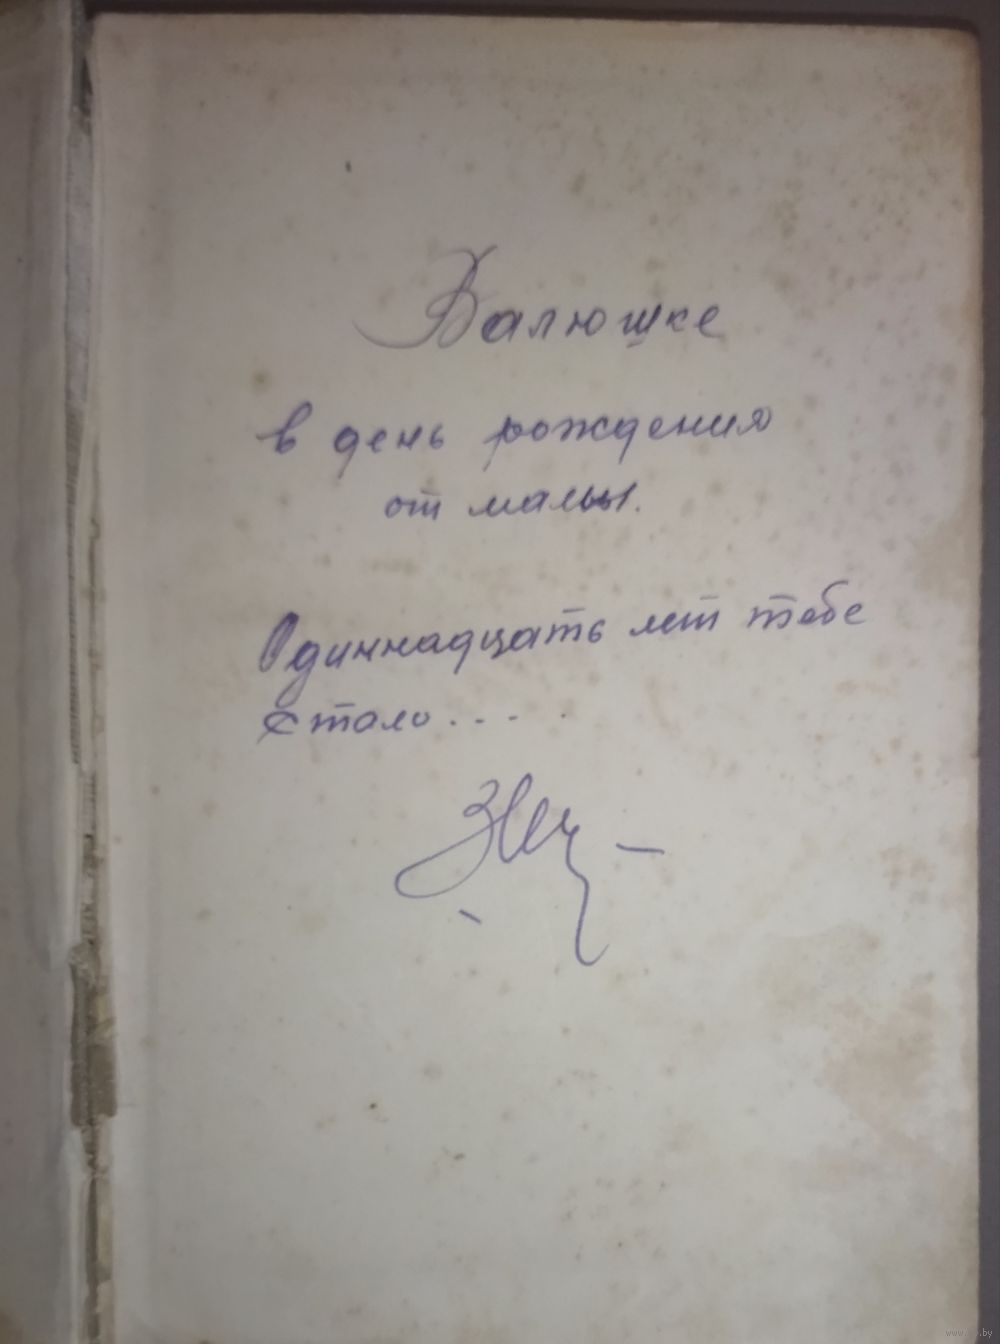 Валюшке
в день рождения
от мамы.
Одиннадцать лет тебе
стало...